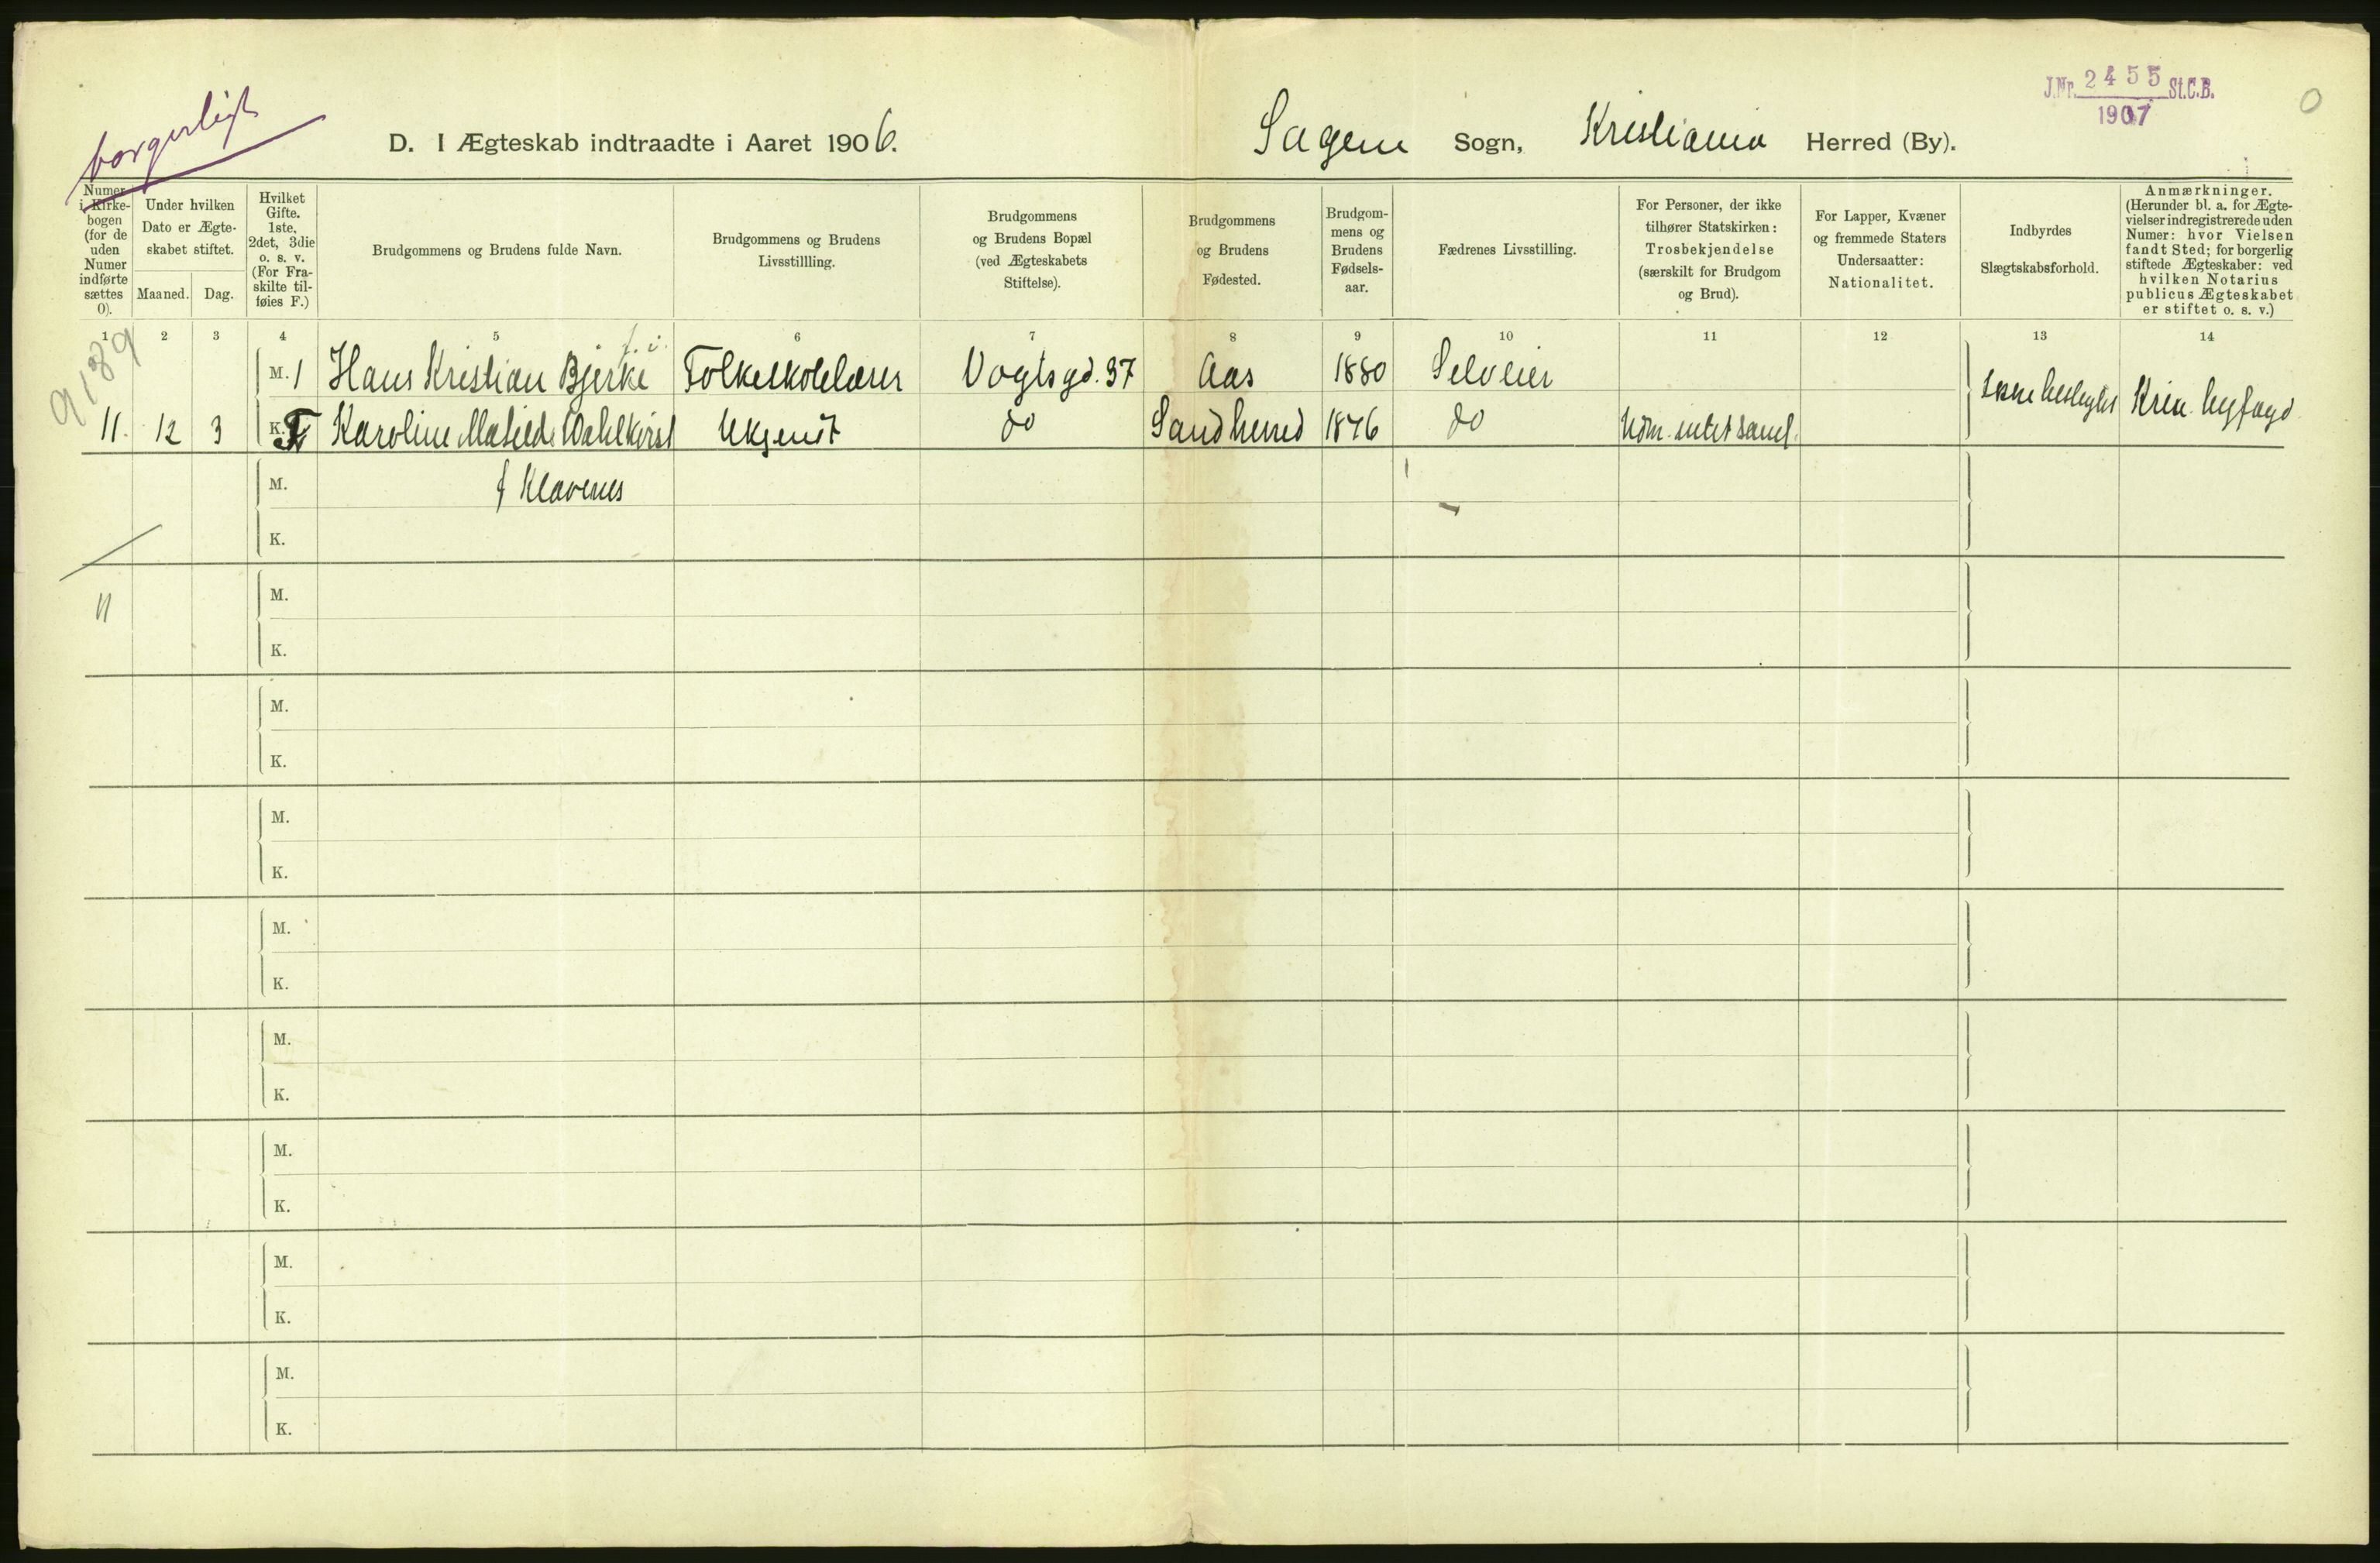 borgerligt
D. I Ægteskab indtraadte i Aaret 1906.
Sagene Sogn, Kristiania Herred (By).
J.Nr. 2455 St.C.B.
1907
0
Numer i Kirkebogen (for de uden Numer indførte sættes 0).
Under hvilken Dato er Ægteskabet stiftet.
Maaned. Dag.
Hvilket Gifte. 1ste, 2det, 3die o. s. v. (For Fraskilte tilføies F.)
Brudgommens og Brudens fulde Navn.
Brudgommens og Brudens Livsstillling.
Brudgommens og Brudens Bopæl (ved Ægteskabets Stiftelse).
Brudgommens og Brudens Fødested.
Brudgommens og Brudens Fødselsaar.
Fædrenes Livsstilling.
For Personer, der ikke tilhører Statskirken: Trosbekjendelse (særskilt for Brudgom og Brud).
For Lapper, Kvæner og fremmede Staters Undersaatter: Nationalitet.
Indbyrdes Slægtskabsforhold.
Anmærkninger. (Herunder bl. a. for Ægtevielser indregistrerede uden Numer: hvor Vielsen fandt Sted; for borgerlig stiftede Ægteskaber: ved hvilken Notarius publicus Ægteskabet er stiftet o. s. v.)
1 2 3 4 5 6 7 8 9 10 11 12 13 14
9139
M. 1 Hans Kristian Bjerke Folkeskolelærer Vogtsgd. 37 Aas 1880 Selveier
11. 12 3 K. F Karoline Matilde Sandherred 1876 do
Ikke beslegtet Kria. byfogd
M. f Klavenes
K.
11
M.
K.
M.
K.
M.
K.
M.
K.
M.
K.
M.
K.
M.
K.
M.
K.